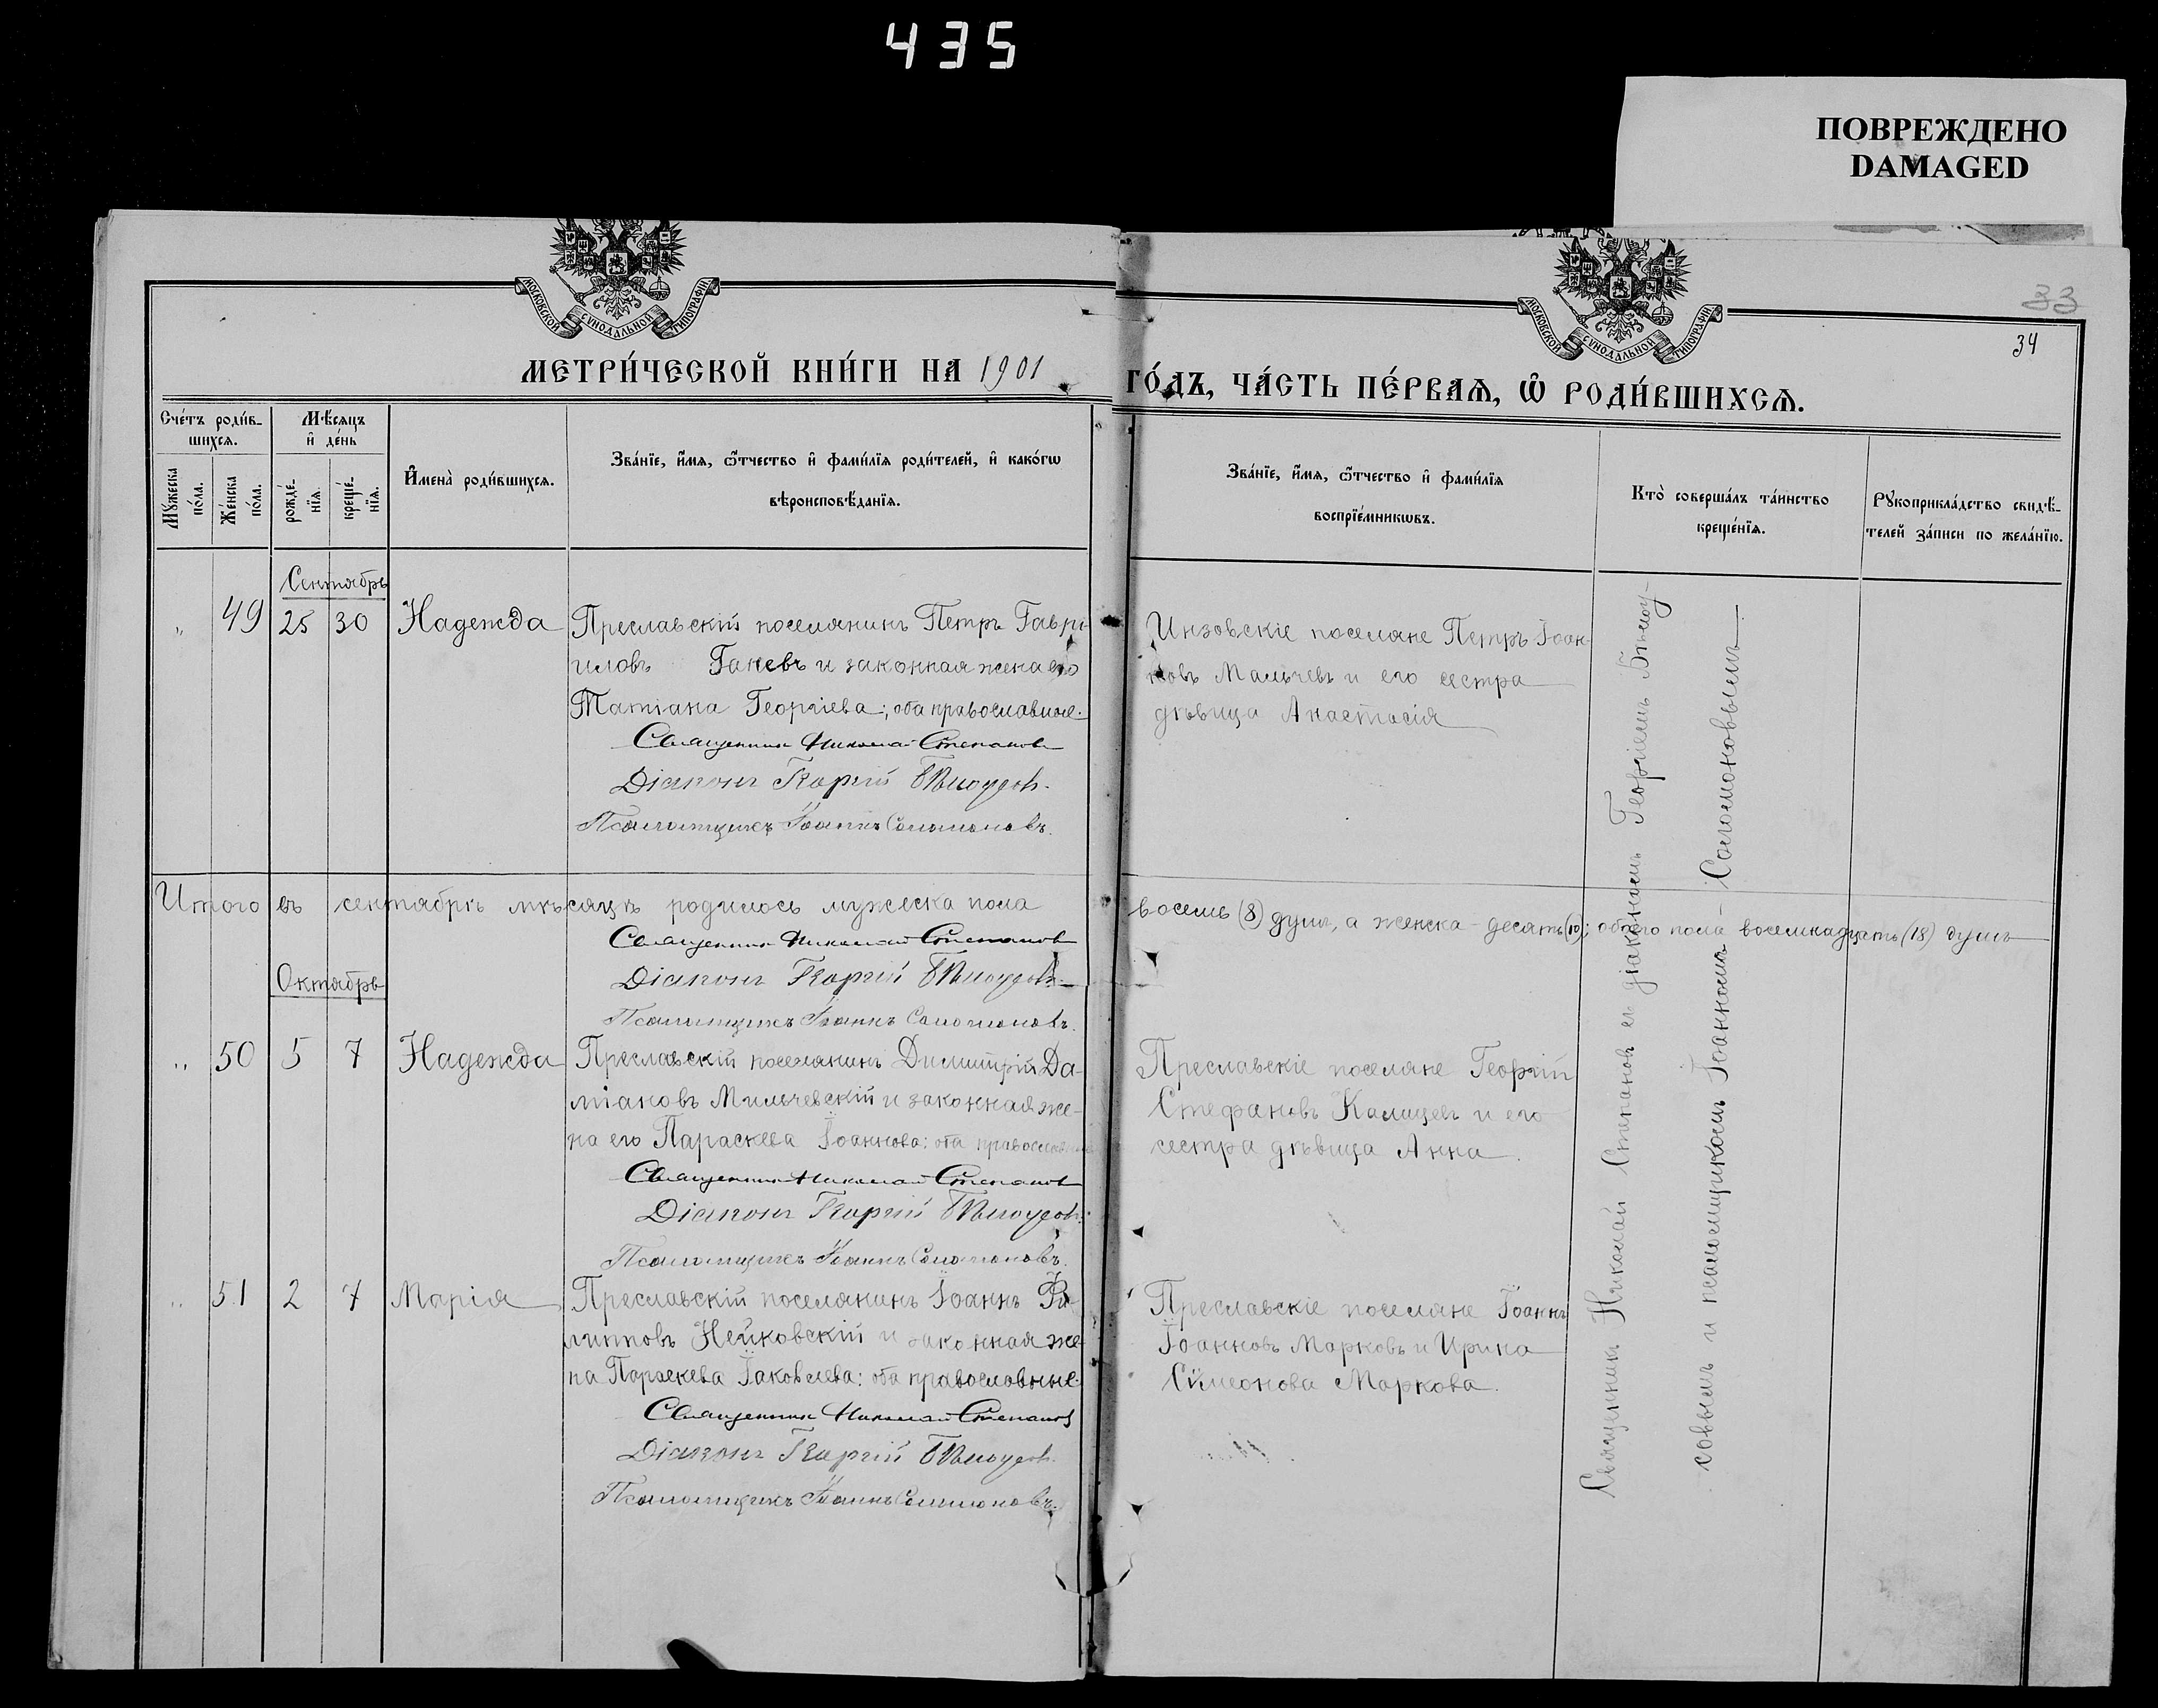 435
ПОВРЕЖДЕНО
DAMAGED
МОСКОВСКОЙ СѴНОДАЛЬНОЙ ТИПОГРАФІИ
МОСКОВСКОЙ СѴНОДАЛЬНОЙ ТИПОГРАФІИ
33
34
МЕТРИ́ЧЕСКОЙ КНИ́ГИ НА 1901
ГО́ДЪ, ЧА́СТЬ ПЕ́РВАѦ, Ѽ РОДИ́ВШИХСѦ.
Сче́тъ роди́в-
шихся.
Мѣ́сяцъ
и҆ де́нь
Мꙋ́жеска
по́ла.
Же́нска
по́ла.
рожде́-
нїя.
креще́-
нїя.
И҆мена̀ роди́вшихся.
Зва́нїе, и҆́мя, ѻ҆́тчество и҆ фами́лїя роди́телей, и҆ како́гѡ
вѣроисповѣ́данїя.
Зва́нїе, и҆́мя, ѻ҆́тчество и҆ фами́лїя
воспрїе́мникѡвъ.
Кто̀ соверша́лъ та́инство
креще́нїя.
Рꙋкоприкла́дство свидѣ́-
телей за́писи по жела́нїю.
Сентябрь
„ 49 25 30 Надежда
Преславскій поселянинъ Петръ Гаври-
иловъ Ганевъ и законная жена его
Татіана Георгіева; оба православные.
Священникъ Николай Степановъ
Діаконъ Георгій Бѣлоусовъ.
Псаломщикъ Іоаннъ Соломоновъ.
Инзовскіе поселяне Петръ Іоан-
новъ Мальчевъ и его сестра
дѣвица Анастасія
Итого въ сентябрѣ мѣсяцѣ родилось мужеска пола
восемь (8) душъ, а женска - десять (10); обоего пола - восемнадцать (18) душъ
Священникъ Николай Степановъ
Діаконъ Георгій Бѣлоусовъ.
Псаломщикъ Іоаннъ Соломоновъ.
Октябрь
„ 50 5 7 Надежда
Преславскій поселянинъ Димитрій Да-
міановъ Мильчевскій и законная же-
на его Параскева Іоаннова: оба православные
Священникъ Николай Степановъ
Діаконъ Георгій Бѣлоусовъ.
Псаломщикъ Іоаннъ Соломоновъ.
Преславскіе поселяне Георгій
Стефановъ Калицевъ и его
сестра дѣвица Анна.
„ 51 2 7 Марія
Преславскій поселянинъ Іоаннъ Фи-
липповъ Нейковскій и законная же-
на Параскева Іаковлева: оба православные.
Священникъ Николай Степановъ
Діаконъ Георгій Бѣлоусовъ.
Псаломщикъ Іоаннъ Соломоновъ.
Преславскіе поселяне Іоаннъ
Іоанновъ Марковъ и Ирина
Сѵмеонова Маркова.
Священникъ Николай Степановъ съ діакономъ Георгіемъ Бѣлоу-
совымъ и псаломщикомъ Іоанномъ Соломоновымъ